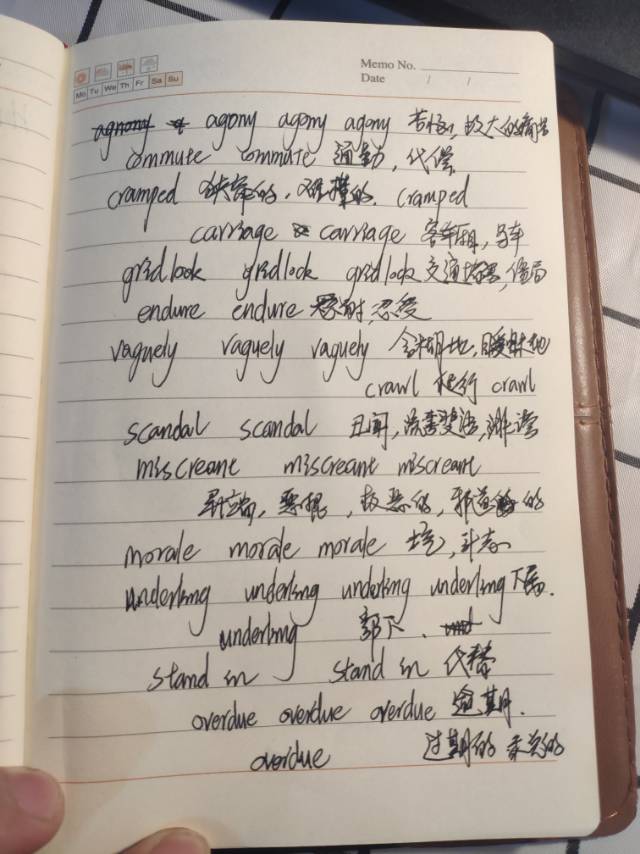 Memo No.
Date / /
Mo Tu We Th Fr Sa Su
agony agony agony 苦恼, 极大的痛苦
commute commute 通勤, 代偿
cramped 狭窄的, cramped
carriage carriage 客车厢, 马车
gridlock gridlock gridlock 交通堵塞, 僵局
endure endure 忍耐, 忍受
vaguely vaguely vaguely 含糊地, 暧昧地
crawl 爬行 crawl
scandal scandal 丑闻, 流言蜚语, 诽谤
miscreant miscreant miscreant
异端, 恶棍, 极恶的, 邪道的
morale morale morale 士气, 斗志
underling underling underling underling 下属.
underling 部下.
stand in stand in 代替
overdue overdue overdue 逾期.
overdue 过期的